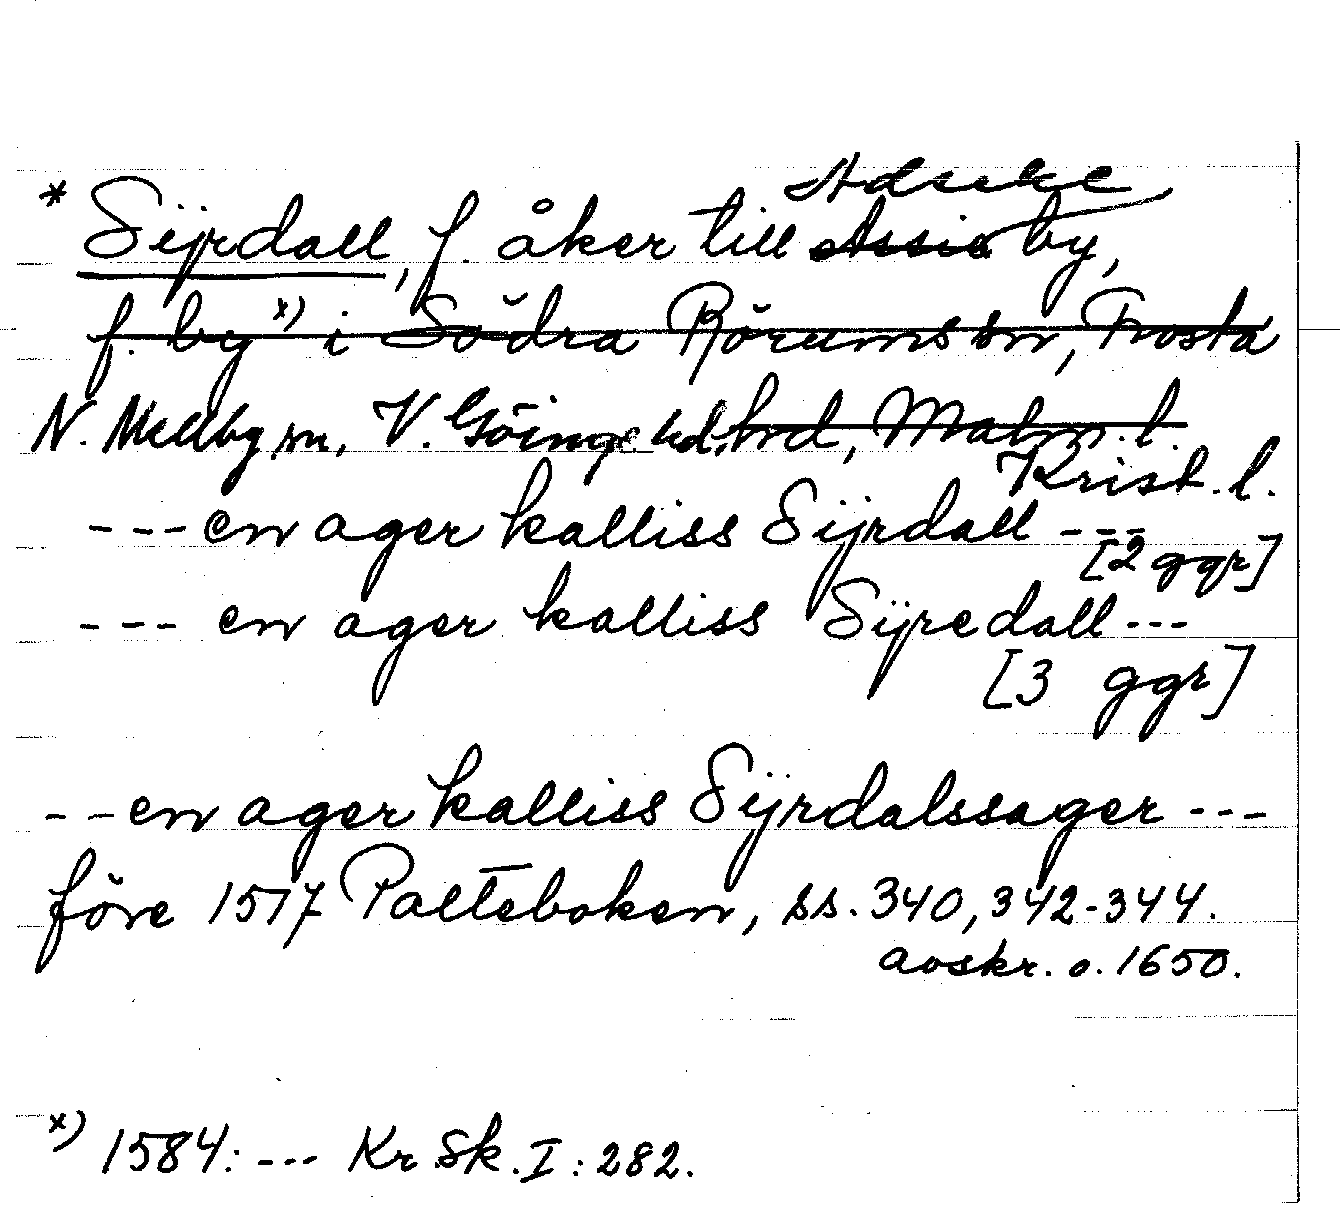 Adseke
* Sijrdall, f. åker till Assie by,
f. by x) i Södra Rörums sn, Frosta
N. Mellby sn, V. Göinge hd, hrd, Malm. l.
Krist. l.
---en ager kalliss Sijrdall ---
[2 ggr]
--- en ager kalliss Sijredall ---
[3 ggr]
--en ager kalliss Sijrdalssager ---
före 1517 Palteboken, ss. 340, 342-344.
avskr. o. 1650.
x) 1584: --- Kr Sk. I: 282.